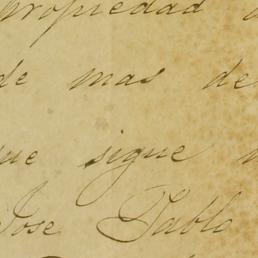 propiedad
de mas de
que sigue
Jose Pablo